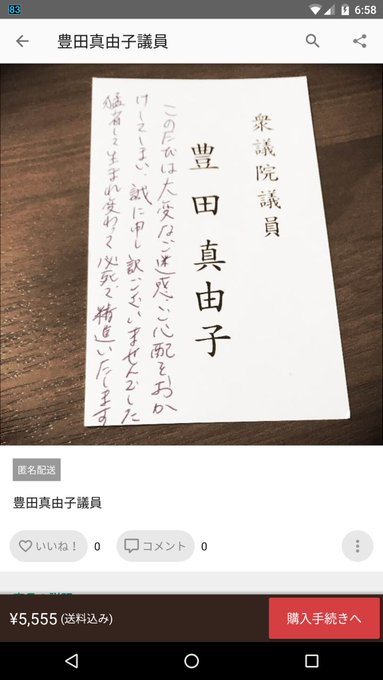 83
6:58
豊田真由子議員
衆議院議員
豊田真由子
このたびは大変なご迷惑ご心配をおか
けしてしまい、誠に申し訳ございませんでした
猛省して生まれ変わって必死で精進いたします
匿名配送
豊田真由子議員
いいね！ 0 コメント 0
¥5,555 (送料込み) 購入手続きへ